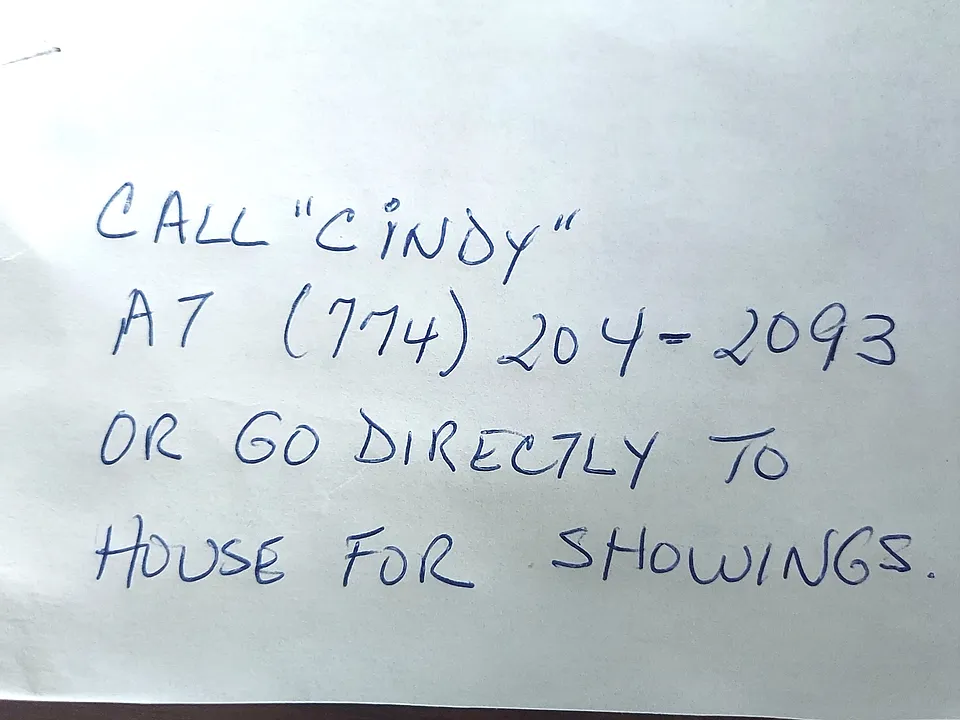 CALL "CiNDY"
AT (774) 204-2093
OR GO DIRECTLY TO
HOUSE FOR SHOWINGS.